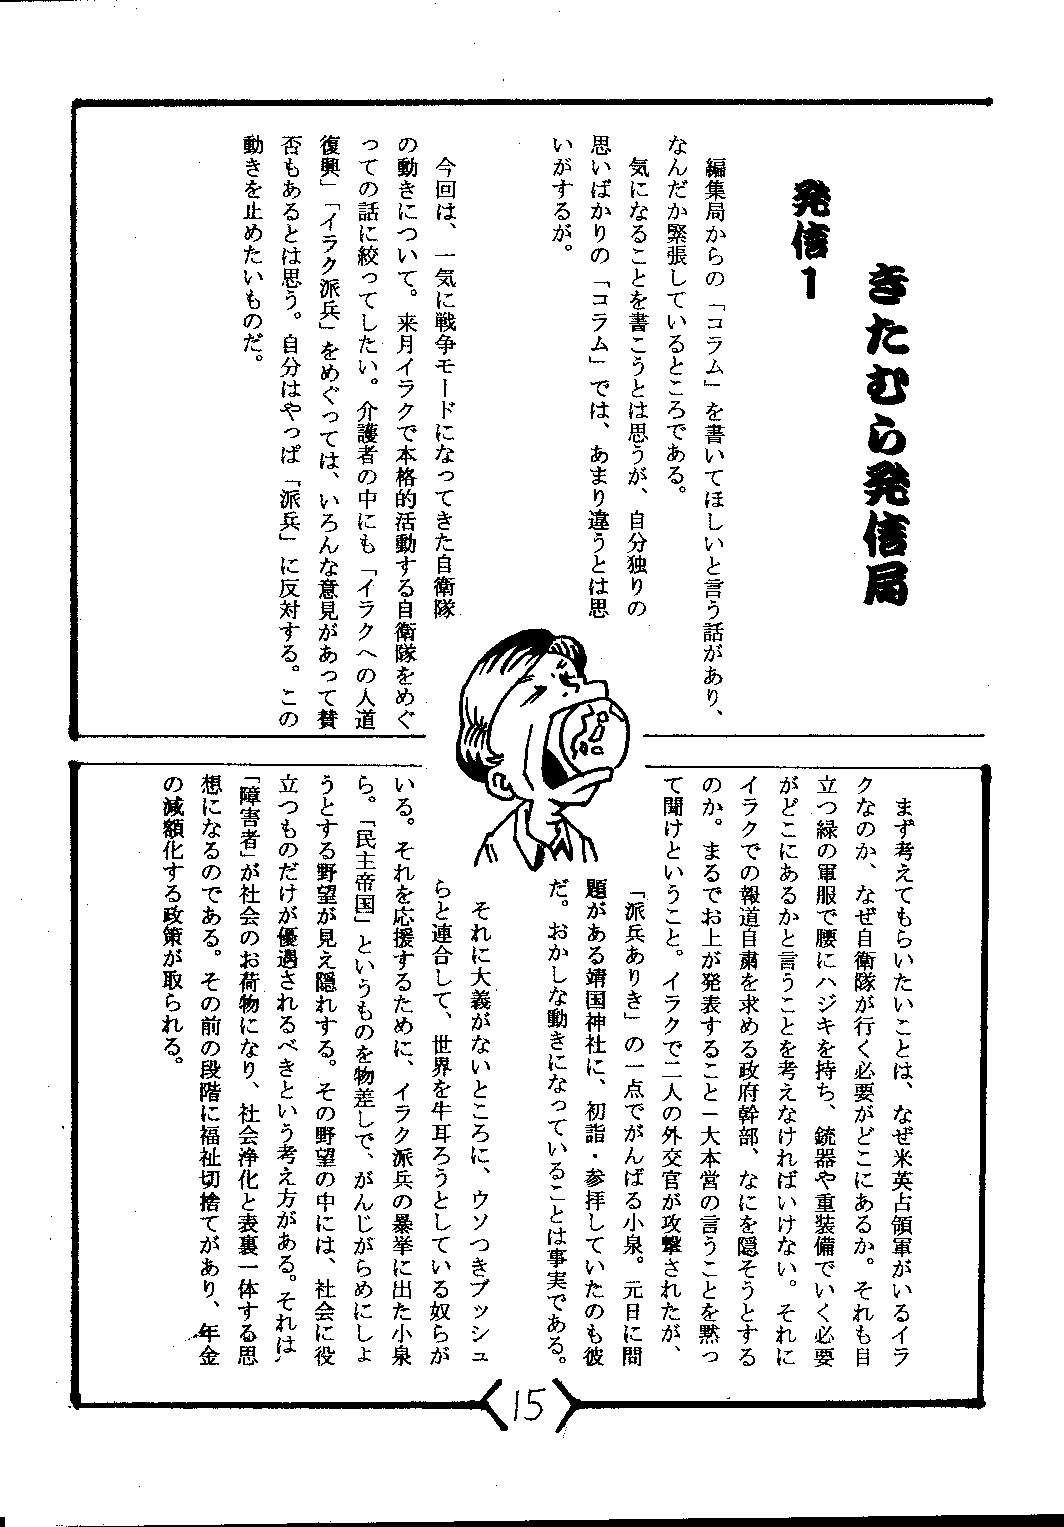 きたむら発信局
発信1
編集局からの「コラム」を書いてほしいと言う話があり、
なんだか緊張しているところである。
気になることを書こうとは思うが、自分独りの
思いばかりの「コラム」では、あまり違うとは思
いがするが。
今回は、一気に戦争モードになってきた自衛隊
の動きについて。来月イラクで本格的活動する自衛隊をめぐ
っての話に絞ってしたい。介護者の中にも「イラクへの人道
復興」「イラク派兵」をめぐっては、いろんな意見があって賛
否もあるとは思う。自分はやっぱ「派兵」に反対する。この
動きを止めたいものだ。
まず考えてもらいたいことは、なぜ米英占領軍がいるイラ
クなのか、なぜ自衛隊が行く必要がどこにあるか。それも目
立つ緑の軍服で腰にハジキを持ち、銃器や重装備でいく必要
がどこにあるかと言うことを考えなければいけない。それに
イラクでの報道自粛を求める政府幹部、なにを隠そうとする
のか。まるでお上が発表すること－大本営の言うことを黙っ
て聞けということ。イラクで二人の外交官が攻撃されたが、
「派兵ありき」の一点でがんばる小泉。元日に問
題がある靖国神社に、初詣・参拝していたのも彼
だ。おかしな動きになっていることは事実である。
それに大義がないところに、ウソつきブッシュ
らと連合して、世界を牛耳ろうとしている奴らが
いる。それを応援するために、イラク派兵の暴挙に出た小泉
ら。「民主帝国」というものを物差しで、がんじがらめにしょ
うとする野望が見え隠れする。その野望の中には、社会に役
立つものだけが優遇されるべきという考え方がある。それは
「障害者」が社会のお荷物になり、社会浄化と表裏一体する思
想になるのである。その前の段階に福祉切捨てがあり、年金
の減額化する政策が取られる。
15